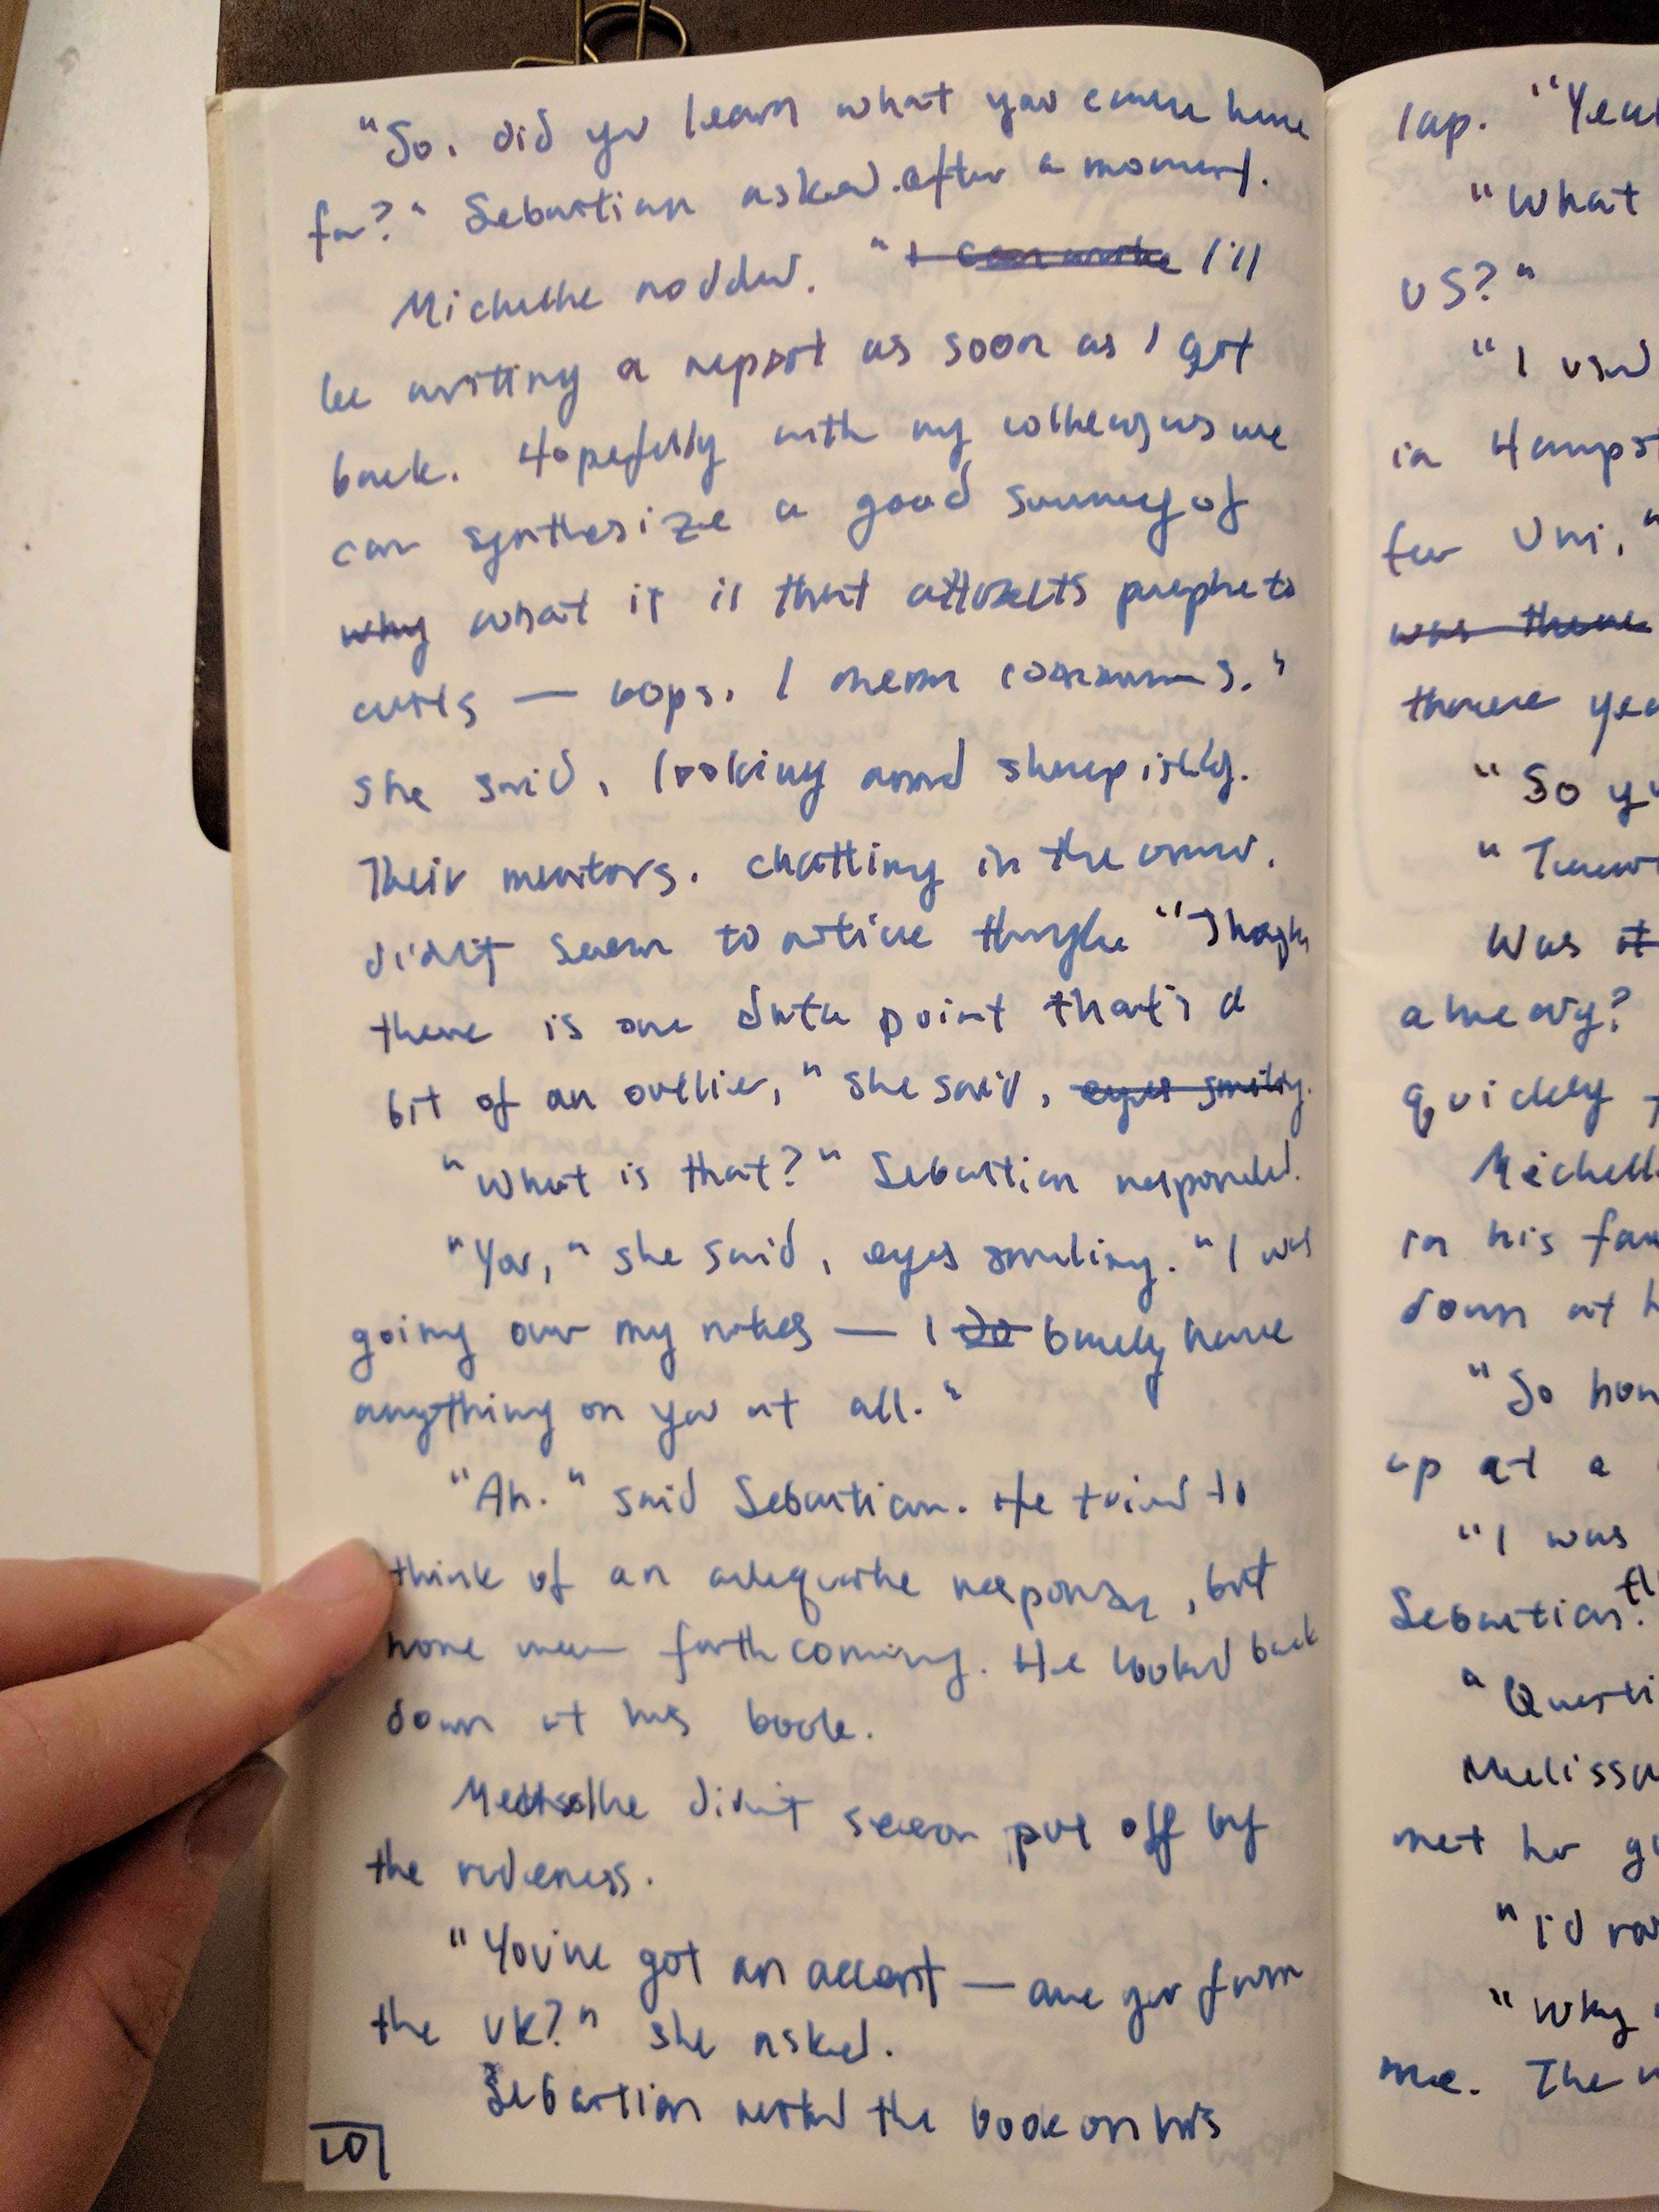 "So, did you learn what you came here
for?" Sebastian asked after a moment.
Michelle nodded. "I can write I'll
be writing a report as soon as I get
back. Hopefully with my colleagues we
can synthesize a good summary of
why what it is that attracts people to
cults — oops, I mean communes."
she said, looking around sheepishly.
Their mentors, chatting in the corner,
didn't seem to notice though "Though
there is one data point that's a
bit of an outlier," she said, eyes smiling.
"What is that?" Sebastian responded.
"You," she said, eyes smiling. "I was
going over my notes — I do barely have
anything on you at all."
"Ah." said Sebastian. He tried to
think of an adequate response, but
none were forthcoming. He looked back
down at his book.
Michelle didn't seem put off by
the rudeness.
"You've got an accent — are you from
the UK?" she asked.
Sebastian rested the book on his
lap. "Yeah
"What
US?"
"I used
in
for Uni,"
was there
three
"So
Was it
already?
quickly
Michelle
in his
down at
"So how
up at a
"I was
Sebastian.
Melissa
met her
"I'd
"Why
me. The